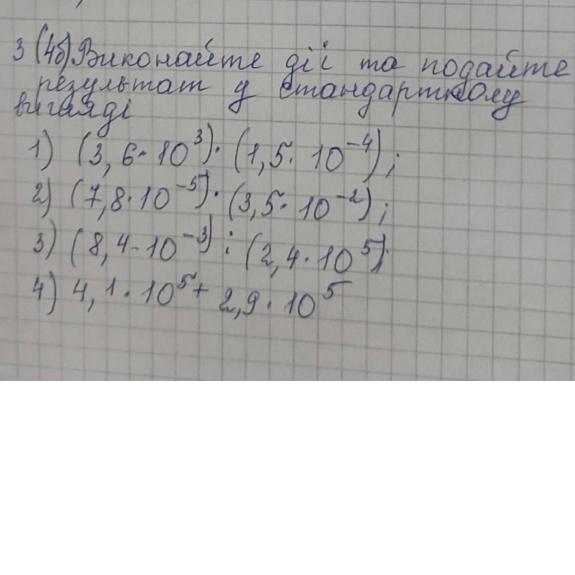 3 (4б) Виконайте дії та подайте
результат у стандартному
вигляді
1) (3,6·10³)·(1,5·10⁻⁴);
2) (7,8·10⁻⁵)·(3,5·10⁻²);
3) (8,4·10⁻³):(2,4·10⁵);
4) 4,1·10⁵+2,9·10⁵